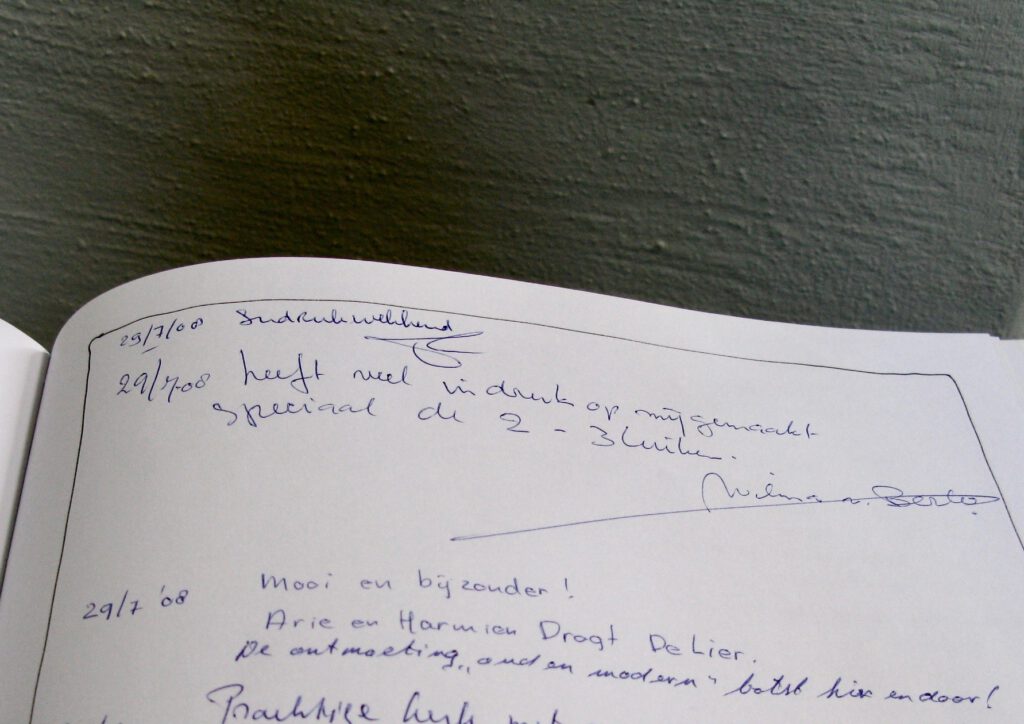 29/7/08 Indrukwekkend
29/7-08 heeft veel indruk op mij gemaakt
speciaal de 2 - 3 luiken.
Wilma v.
29/7 '08 Mooi en bijzonder!
Arie en Harmien Drogt De Lier.
De ontmoeting „oud en modern" botst hier en daar!
Prachtige kerk met